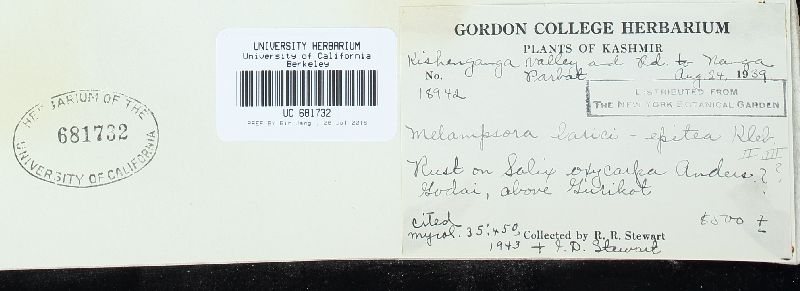 HERBARIUM OF THE
681732
UNIVERSITY OF CALIFORNIA
UNIVERSITY HERBARIUM
University of California
Berkeley
UC 681732
GORDON COLLEGE HERBARIUM
PLANTS OF KASHMIR
Kishenganga Valley and Rd. to Nanga
No. Parbat Aug. 24, 1939
18942
DISTRIBUTED FROM
THE NEW YORK BOTANICAL GARDEN
Melampsora larici-epitea Kleb.
II III
Rust on Salix oxycarpa Anders. ? ?
Godai, above Gurikot ?
8500 ±
cited
mycol. 35:450, Collected by R. R. Stewart
1943 + I. D. Stewart